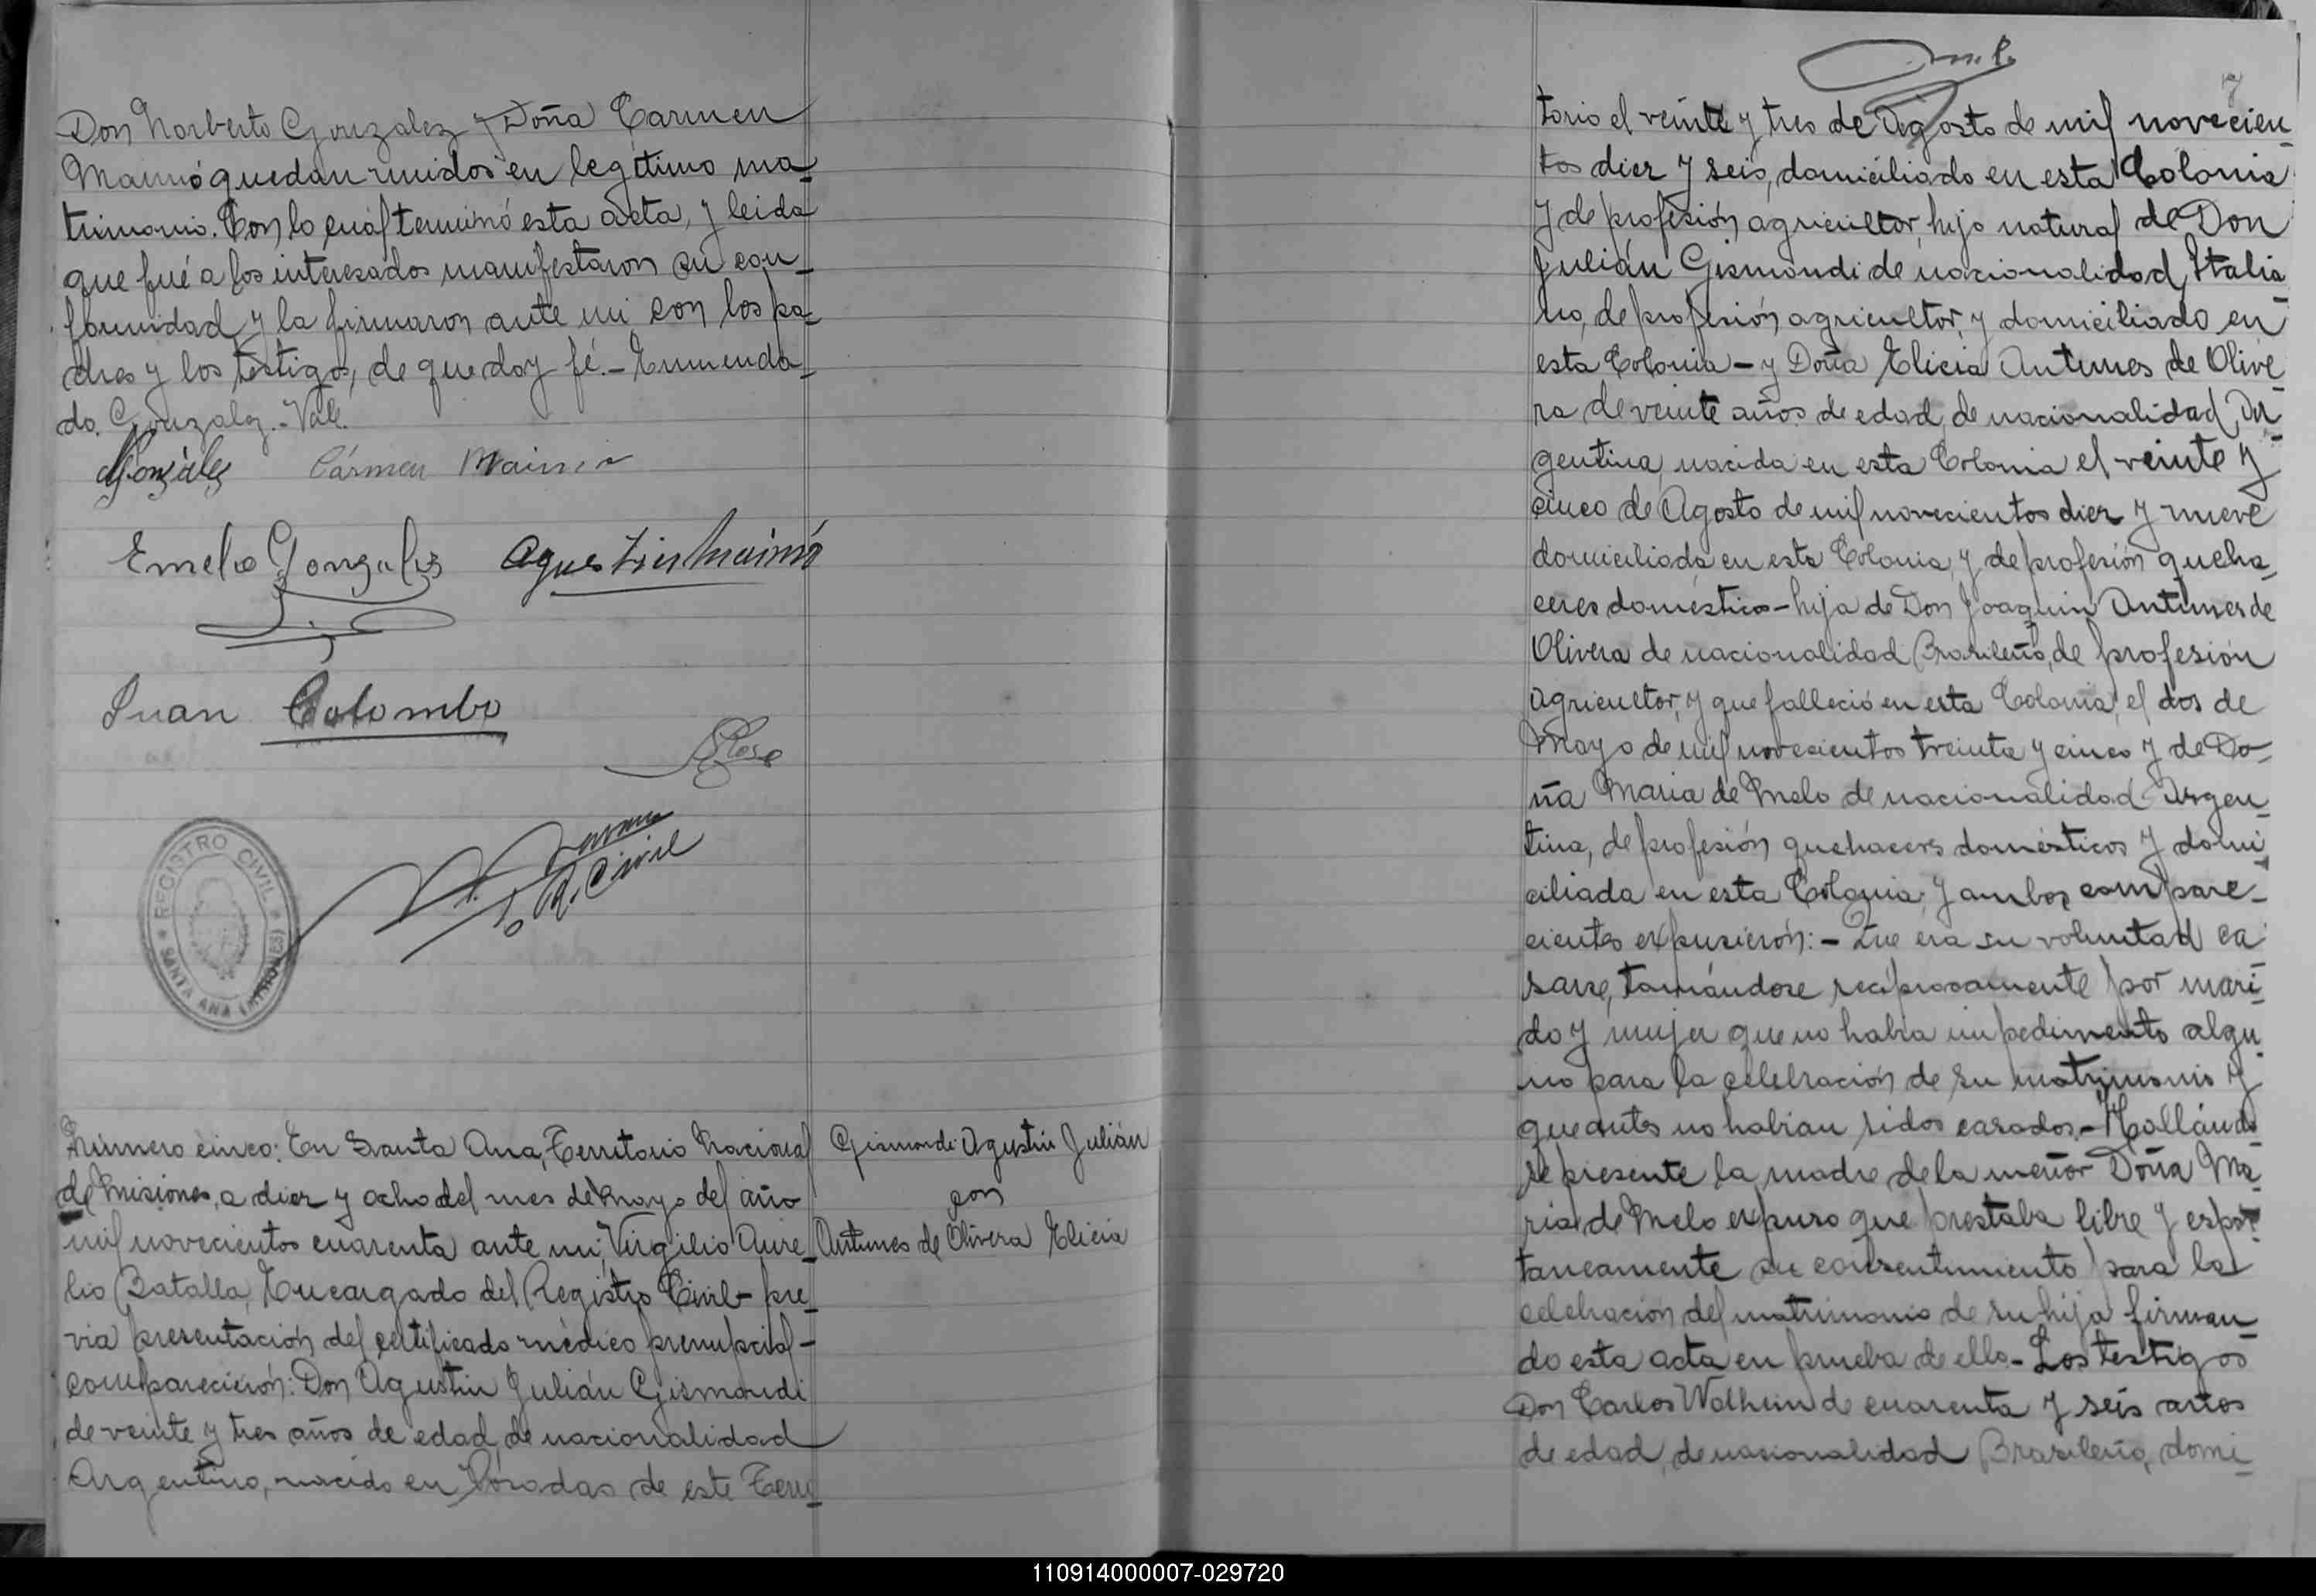 Don Norberto Gonzalez y Doña Carmen
Maimó quedan unidos en legítimo ma_
trimonio. Con lo cuál terminó esta acta, y leida
que fué a los interesados manifestaron su con_
formidad y la firmaron ante mi con los pa_
dres y los testigos, de que doy fé.- Enmenda_
do. Gonzalez.- Vale.
NGonzàlez Cármen Maimó
Emelio Gonzales Agustin Maimó
Juan Colombo
R. Civil
REGISTRO CIVIL
SANTA ANA (MISIONES)
Número cinco: En Santa Ana, Territorio Nacional
de Misiones, a diez y ocho del mes de Mayo del año
mil novecientos cuarenta ante mi, Virgilio Aure_
lio Batalla, Encargado del Registro Civil- pre_
via presentación del certificado médico prenupcial-
comparecieron: Don Agustin Julián Gismondi
de veinte y tres años de edad, de nacionalidad
Argentino, nacido en Posadas de este Terri_
Gismondi Agustin Julián
con
Antunes de Olivera Elicia
7
torio el veinte y tres de Agosto de mil novecien_
tos diez y seis, domiciliado en esta Colonia
y de profesión agricultor, hijo natural de Don
Julián Gismondi de nacionalidad Italia_
no, de profesión agricultor, y domiciliado en
esta Colonia - y Doña Elicia Antunes de Olive_
ra de veinte años de edad, de nacionalidad Ar_
gentina, nacida en esta Colonia el veinte y
cinco de Agosto de mil novecientos diez y nueve
domiciliada en esta Colonia, y de profesión queha_
ceres doméstico - hija de Don Joaquin Antunes de
Olivera de nacionalidad Brasileño, de profesión
agricultor, y que falleció en esta Colonia, el dos de
Mayo de mil novecientos treinta y cinco y de Do_
ña Maria de Melo de nacionalidad Argen_
tina, de profesión quehacers domésticos y domi_
ciliada en esta Colonia; y ambos compare_
cientes expusieron:- Que era su voluntad ca_
sarse, tomándose reciprocamente por mari_
do y mujer que no habia impedimento algu_
no para la celebración de su matrimonio y
que antes no habian sidos casados.- Hallándo
se presente la madre de la menor Doña Ma_
ria de Melo expuso que prestaba libre y espon_
taneamente su consentimiento para la
celebración del matrimonio de su hija firman_
do esta acta en prueba de ello.- Los testigos
Don Carlos Walheim de cuarenta y seis años
de edad, de nasionalidad Brasileño, domi_
110914000007-029720